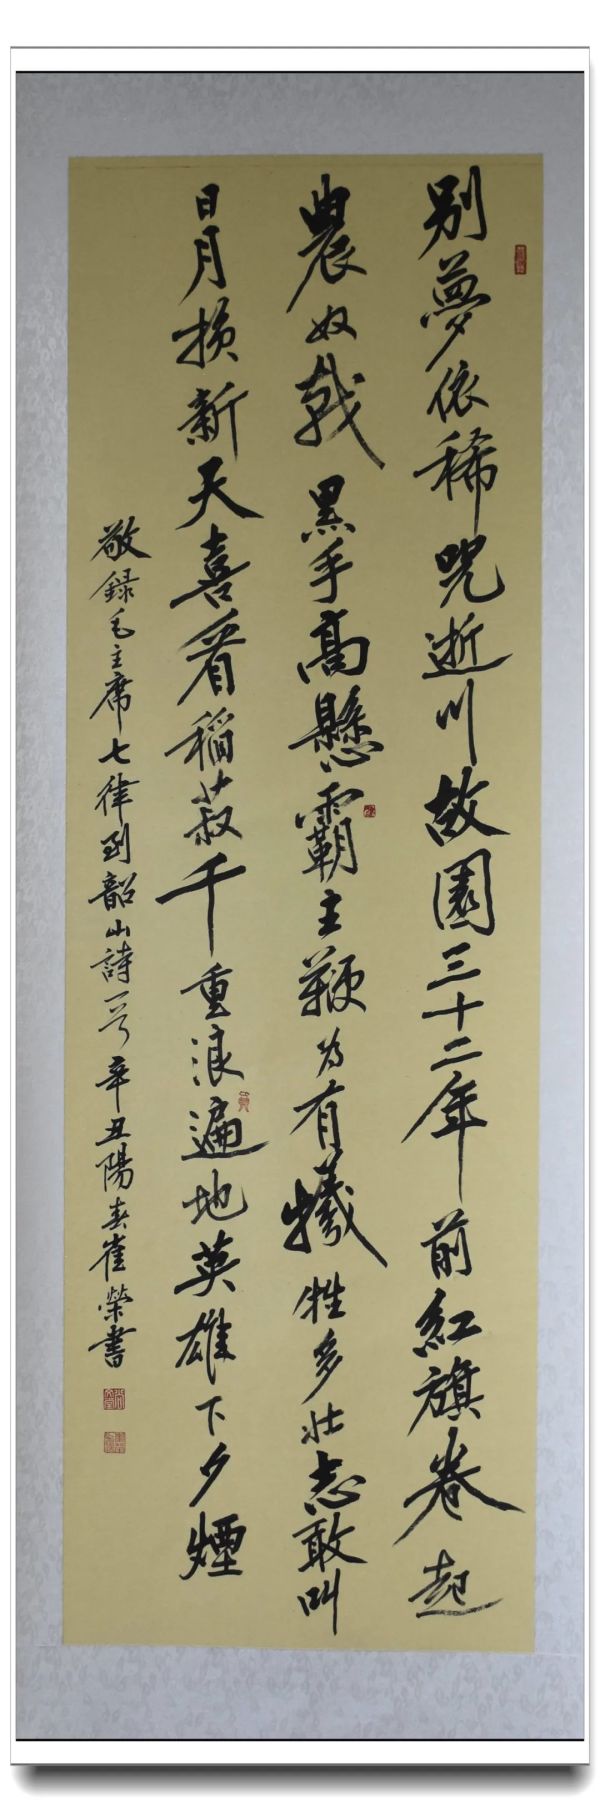 别夢依稀咒逝川故園三十二年前紅旗卷起
農奴戟黑手高懸霸主鞭为有犧牲多壮志敢叫
日月换新天喜看稲菽千重浪遍地英雄下夕煙
敬録毛主席七律到韶山詩一首辛丑陽春崔榮書